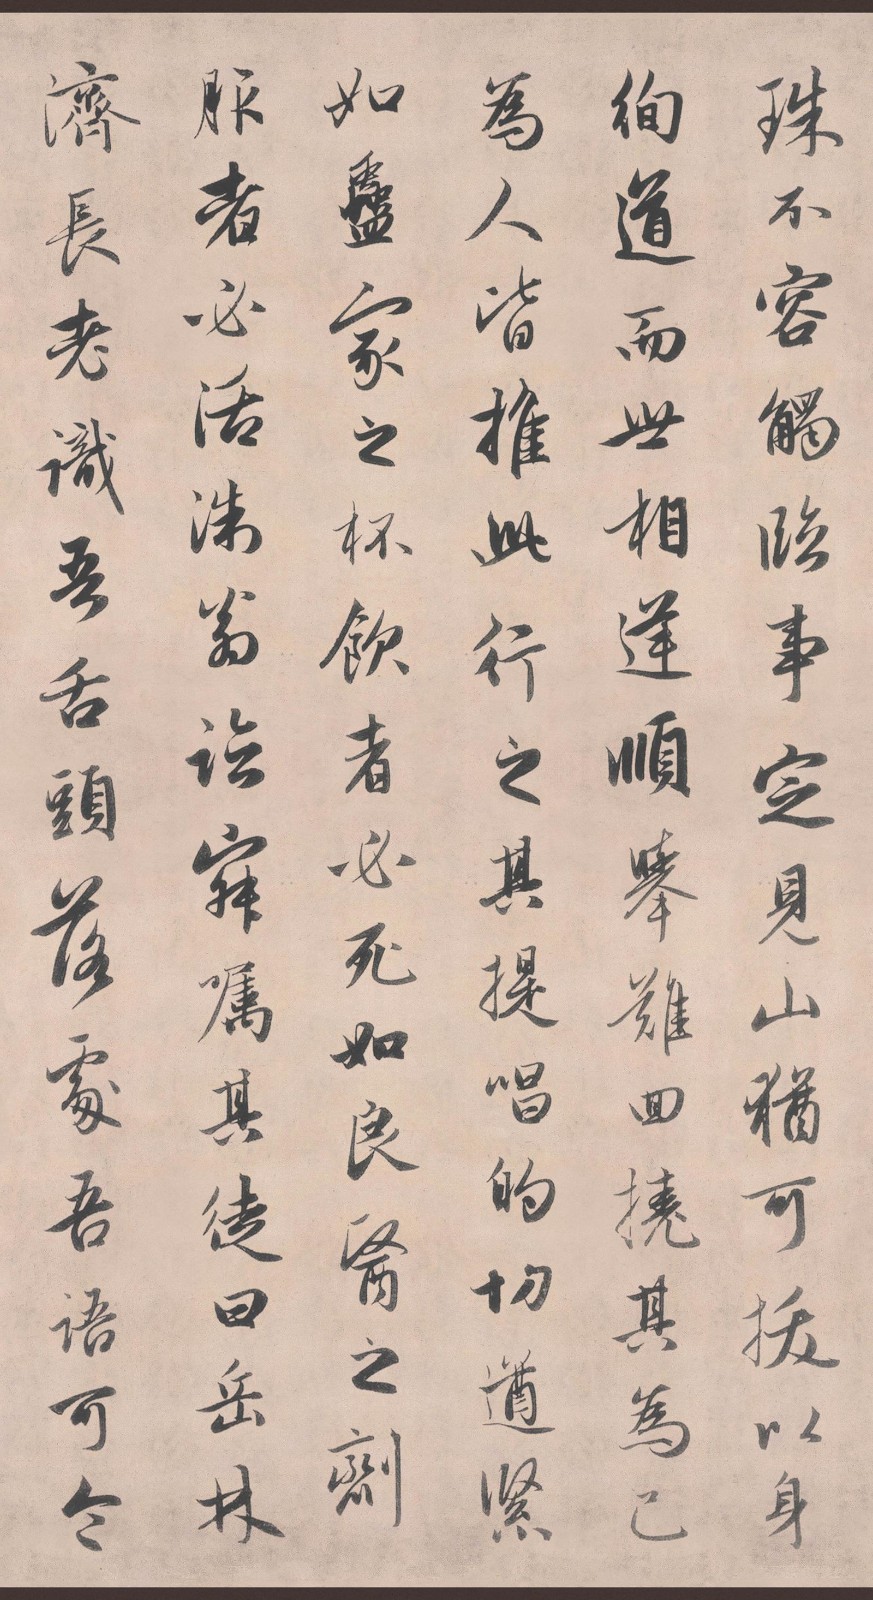 珠不容觸臨事定見山猶可拔以身
徇道而世相逆順舉難回撓其為己
為人皆推此行之其提唱的切遒緊
如蠱家之杯飲者必死如良醫之劑
服者必活洙翁詒寐囑其徒曰岳林
濟長老識吾舌頭落處吾語可令